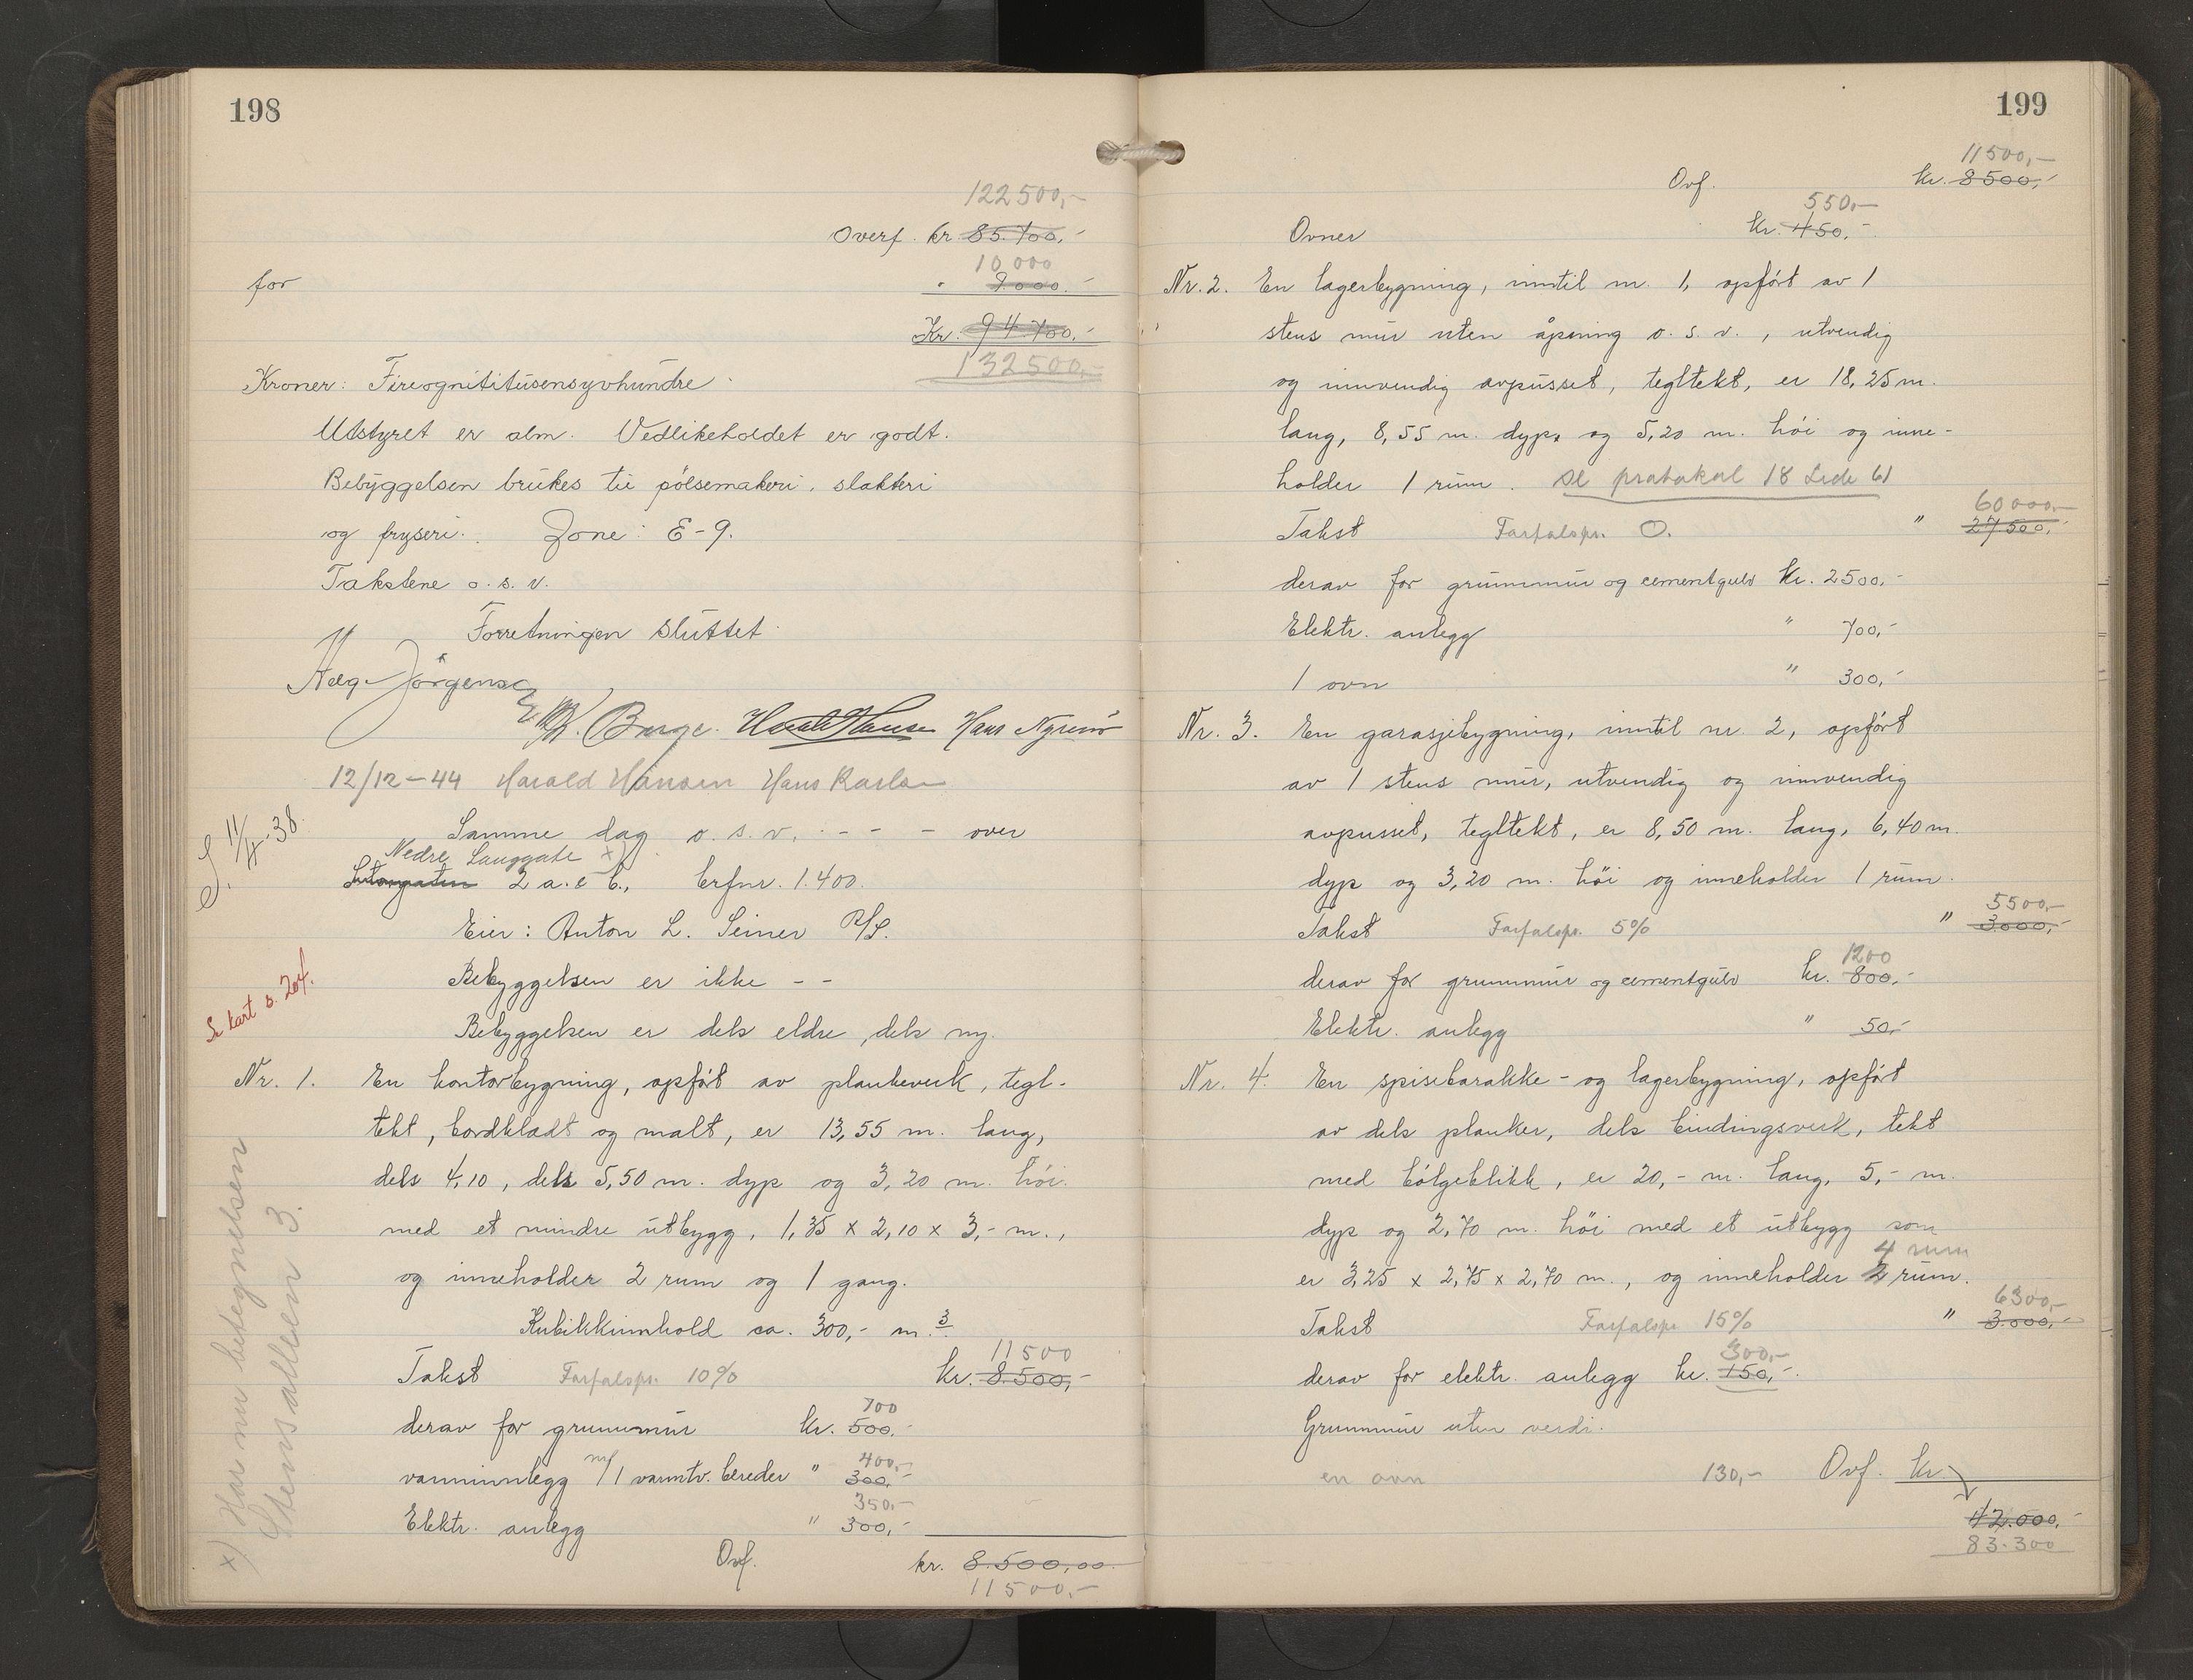 198
122500,-
Overf. kr. 85.700,-
10,000
for " 9.000.-
Kr. 94.700,-
132500,-
Kroner: Fireognittitusensyvhundre
Utstyret er alm. Vedlikeholdet er godt.
Bebyggelsen brukes til pölsemakeri, slakteri
og fryseri. Zone: E-9.
Takstene o. s. v.
Forretningen sluttet
Aag. Jörgensen
Borge. Harald Hansen Hans
12/12-44 Harald Hansen Hans Karlsen
S. 11/4-38.
Samme dag o. s. v. - - - over
Nedre Langgate x)
2 a. & b., brfnr. 1.400.
Eier: Anton L. Seiner A/S.
Se kart s. 204.
Bebyggelsen er ikke - -
Bebyggelsen er dels eldre, dels ny.
Nr. 1. En kontorbygning, opfört av plankeverk, tegl-
tekt, bordkledt og malt, er 13,55 m. lang,
dels 4,10, dels 5,50 m. dyp og 3,20 m. höi.
med et mindre utbygg, 1,35 x 2,10 x 3,- m.,
og inneholder 2 rum og 1 gang.
Kubikkinnhold ca. 300,- m.3
11500
Takst Farfalspr. 10% kr. 8.500,-
700
derav for grunnmur kr. 500,-
400,-
varminnlegg m/ 1 varmtv. bereder " 300,-
350,-
Elektr. anlegg " 300,-
Ovf. kr. 8.500,00.
11500,-
x) Har nu betegnelsen
Steinsalleen 3.
199
11500,-
Ovf. kr. 8500,-
550,-
Ovner kr. 450,-
Nr. 2. En lagerbygning, inntil nr. 1, opfört av 1
stens mur uten åpning o. s. v., utvendig
og innvendig avpusset, tegltekt, er 18,25 m.
lang, 8,55 m. dyp, og 5,20 m. höi og inne-
holder 1 rum. se protokol 18 side 61
60000,-
Takst Farfalspr. 0. " 27500,-
derav for grunnmur og cementgulv kr. 2500,-
Elektr. anlegg " 700,-
1 ovn " 300,-
Nr. 3. En garasjebygning, inntil nr. 2, opfört
av 1 stens mur, utvendig og innvendig
avpusset, tegltekt, er 8,50 m. lang, 6,40 m.
dyp og 3,20 m. höi og inneholder 1 rum.
5500,-
Takst Farfalspr. 5% " 3.000,-
1200
derav for grunnmur og cementgulv kr. 800,-
Elektr. anlegg " 50,-
Nr. 4. En spisebarakke- og lagerbygning, opfört
av dels planker, dels bindingsverk, tekt
med bölgeblikk, er 20,- m. lang, 5,- m.
dyp og 2,70 m. höi med et utbygg som
4 rum
er 3,25 x 2,75 x 2,70 m., og inneholder 2 rum.
6300,-
Takst Farfalspr 15% " 3.000,-
300,-
derav for elektr. anlegg kr. 150,-
Grunnmur uten verdi.
en ovn 130,- Ovf. kr.
42.000,-
83.300